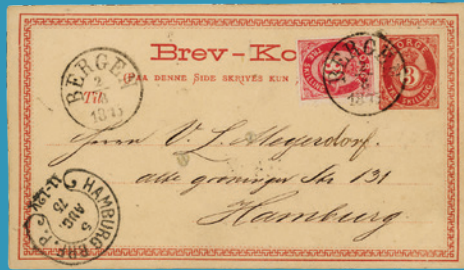 Brev-Ko
(PAA DENNE SIDE SKRIVES KUN
BERGEN
2
1875
Til
BERGEN
NORGE
3
SKILLING
Herrn V. L. Meyerdorf.
alte gröninger Str 131
Hamburg.
HAMBURG
5
AUG
75